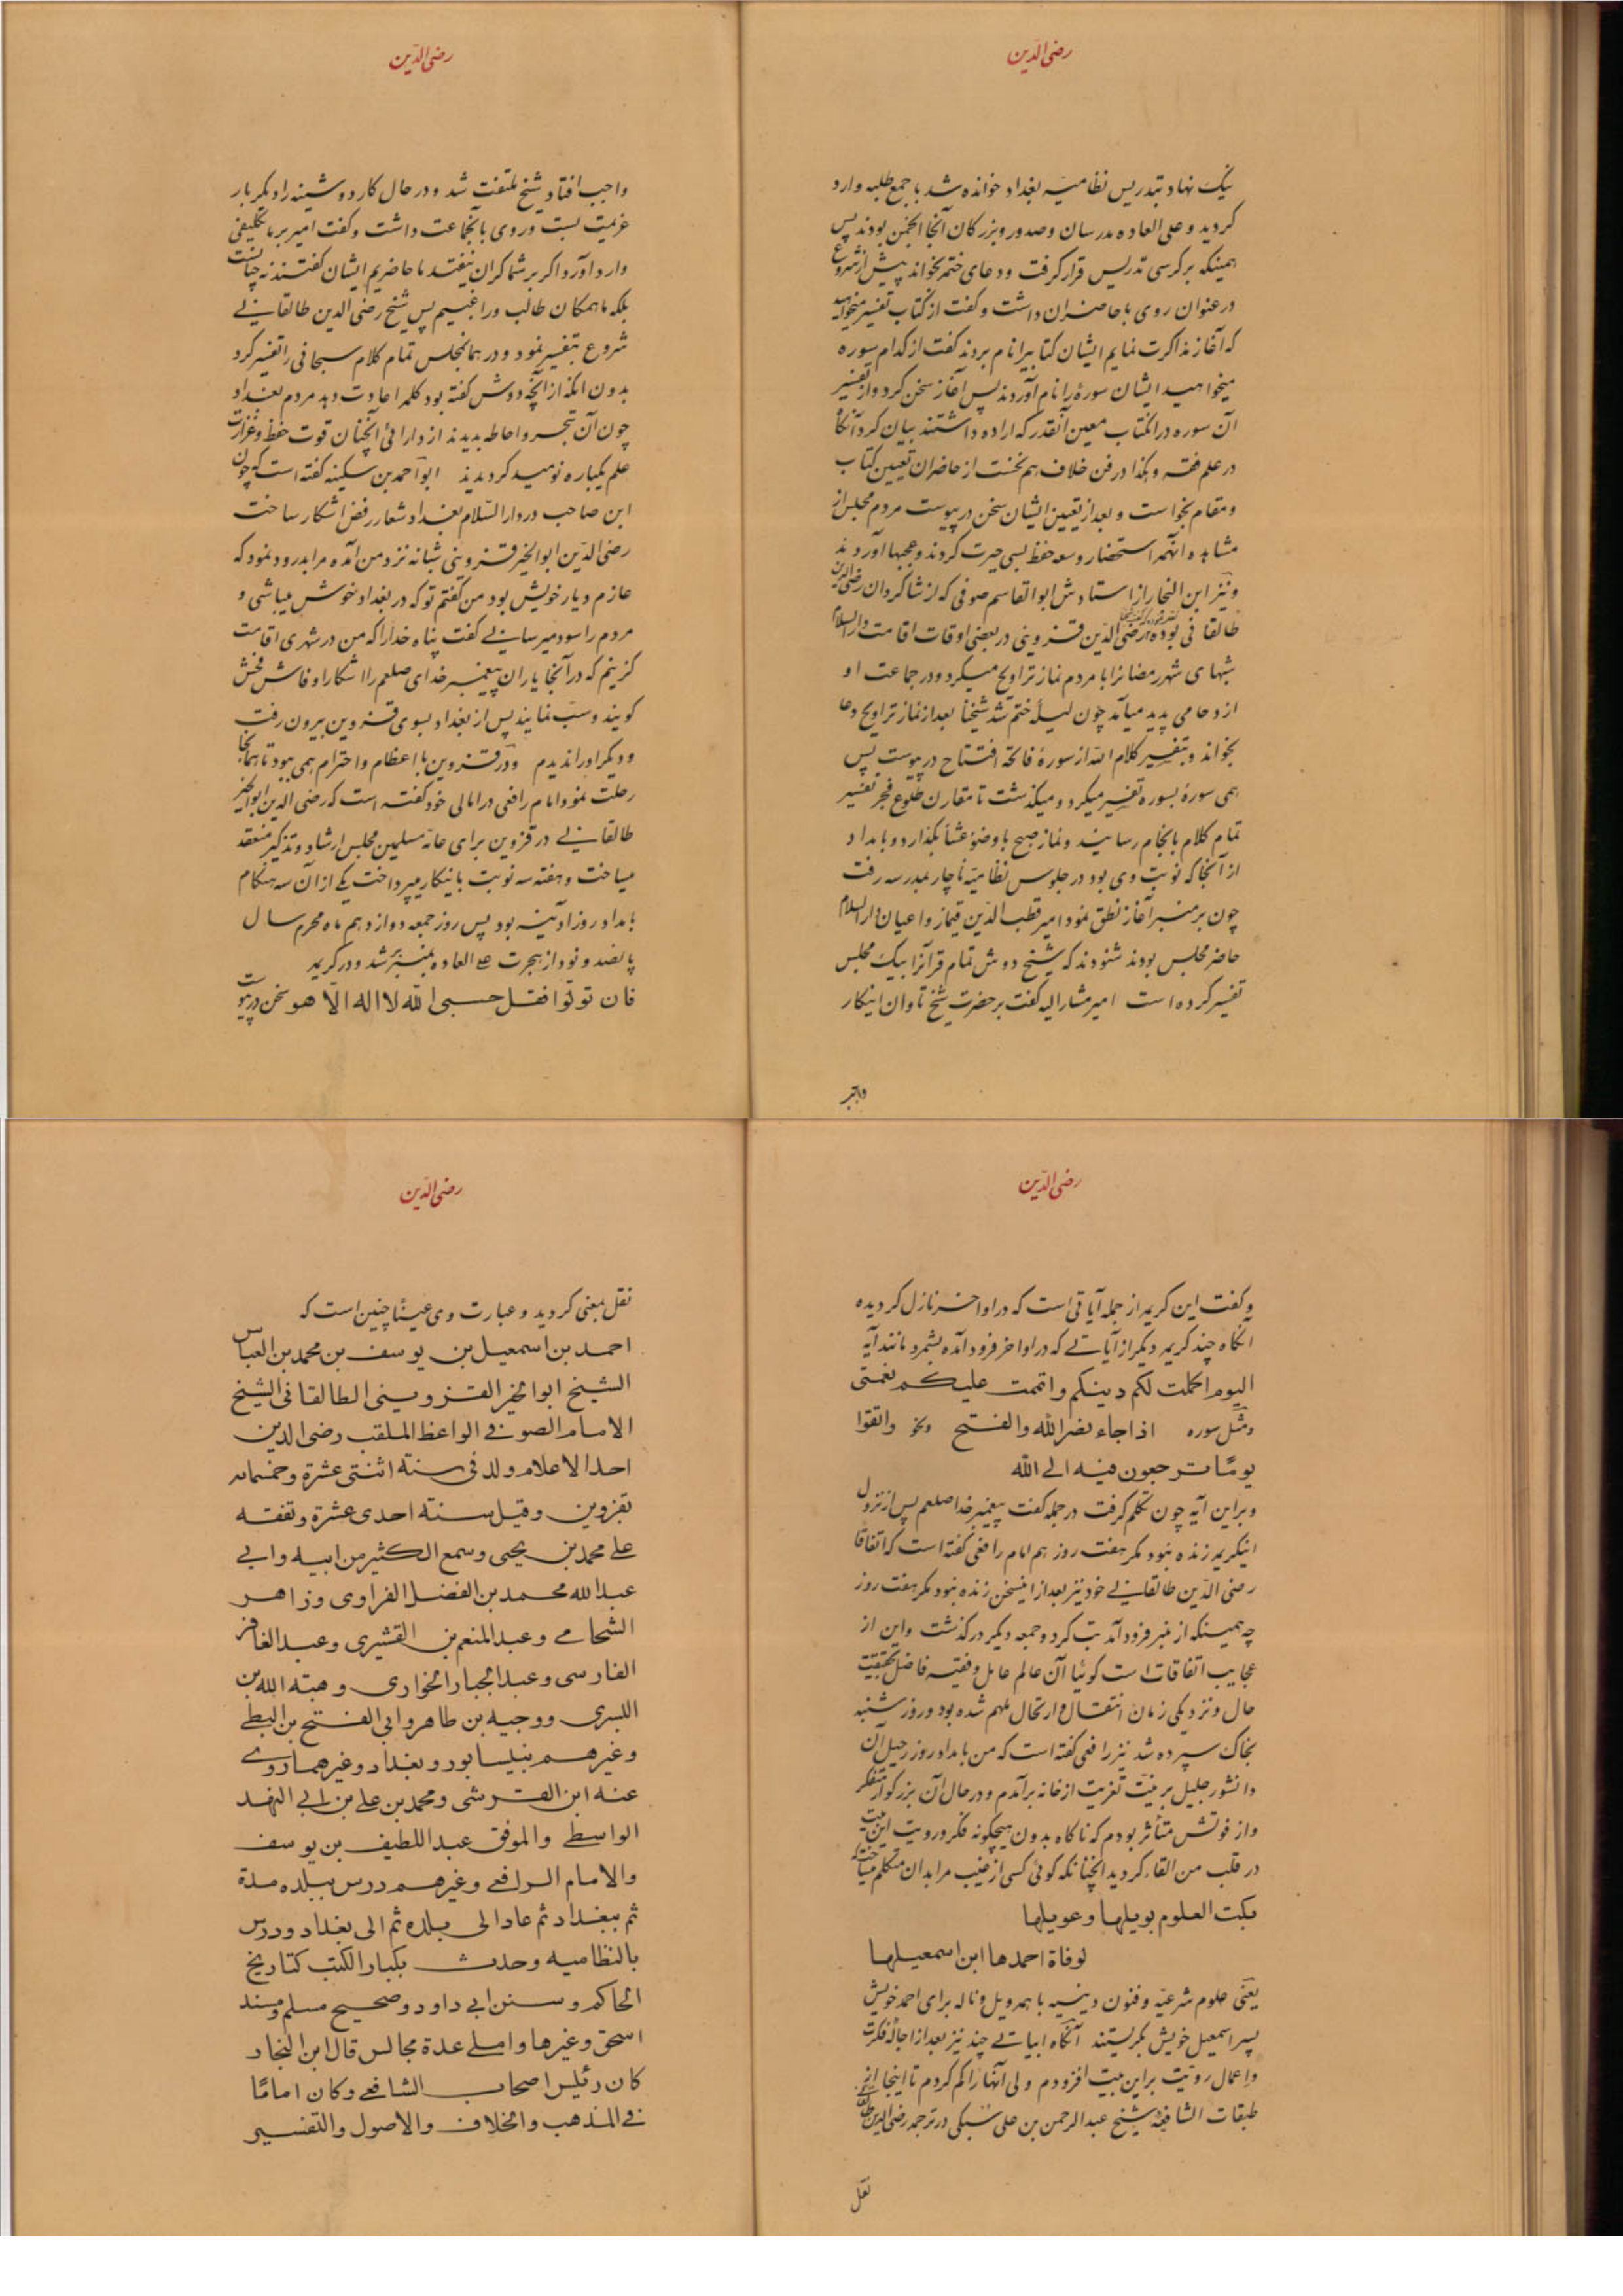 رضی الدین
نیک نهاد بتدریس نظامیه بغداد خوانده شد با جمع طلبه وارد
کردید و علی العاده مدرسان و صدور و بزرکان آنجا انجمن بودند پس
همینکه بر کرسی تدریس قرار کرفت و دعای ختم بخواند پیش از شروع
در عنوان روی با حاضران داشت و کفت از کتاب تفسیر میخواهید
که آغاز مذاکرت نمایم ایشان کتابیرا نام بردند کفت از کدام سوره
میخواهید ایشان سورهٔ را نام آوردند پس آغاز سخن کرد و از تفسیر
آن سوره در آنکتاب معین آنقدر که اراده داشتند بیان کرد آنکاه
در علم فقه و هکذا در فن خلاف هم نخست از حاضران تعیین کتاب
و مقام بخواست و بعد از تعیین ایشان سخن در پیوست مردم مجلس از
مشاهده آنهمه استحضار و سعه حفظ بسی حیرت کردند و عجبها آوردند
و نیز ابن النجار از استادش ابوالقاسم صوفی که از شاکردان رضی الدین
طالقانی بوده رضی الدین قزوینی در بعضی اوقات اقامت دارالسلام
شبهای شهر رمضانرا با مردم نماز تراویح میکرد و در جماعت او
ازدحامی پدید میآمد چون لیلهٔ ختم شد شیخنا بعد از نماز تراویح دعا
بخواند و بتفسیر کلام الله از سورهٔ فاتحه افتتاح در پیوست پس
همی سورهٔ بسوره تفسیر میکرد و میکذشت تا مقارن طلوع فجر تفسیر
تمام کلام بانجام رسانید و نماز صبح با وضوء عشا بکذارد و بامداد
از آنجا که نوبت وی بود در جلوس نظامیه ناچار بمدرسه رفت
چون بر منبر آغاز نطق نمود امیر قطب الدین قیماز و اعیان دارالسلام
حاضر مجلس بودند شنودند که شیخ دوش تمام قرآنرا بیک مجلس
تفسیر کرده است امیر مشار الیه کفت بر حضرت شیخ تاوان اینکار
رضی الدین
واجب افتاد شیخ ملتفت شد و در حال کار دوشینه را دیکر بار
عزیمت بست و روی بآنجماعت داشت و کفت امیر بر ما تکلیفی
وارد آورد اکر بر شما کران نیفتد ما حاضریم ایشان کفتند نه چنانست
بلکه ما همکان طالب و راغبیم پس شیخ رضی الدین طالقانی
شروع بتفسیر نمود و در همانمجلس تمام کلام سبحانی را تفسیر کرد
بدون آنکه از آنچه دوش کفته بود کلمه اعادت دهد مردم بغداد
چون آن تبحر و احاطه بدیدند از دارائی آنچنان قوت حفظ و غزارت
علم یکباره نومید کردیدند ابو احمد بن سکینه کفته است که چون
ابن صاحب در دارالسلام بغداد شعار رفض آشکار ساخت
رضی الدین ابوالخیر قزوینی شبانه نزد من آمده مرا بدرود نمود که
عازم دیار خویش بود من کفتم تو که در بغداد خوش میباشی و
مردم را سود میرسانی کفت پناه خدا را که من در شهری اقامت
کزینم که در آنجا یاران پیغمبر خدای صلعم را اشکارا و فاش فحش
کویند و سب نمایند پس از بغداد بسوی قزوین بیرون رفت
و دیکر او را ندیدم و در قزوین با اعظام و احترام همی بود تا همانجا
رحلت نمود امام رافعی در امالی خود کفته است که رضی الدین ابوالخیر
طالقانی در قزوین برای عامه مسلمین مجلس ارشاد و تذکیر منعقد
میساخت و هفته سه نوبت باینکار میپرداخت یکی از آن سه هنکام
بامداد روز آدینه بود پس روز جمعه دوازدهم ماه محرم سال
پانصد و نود از هجرت علی العاده بمنبر بر شد و در کریمه
فان تولوا فقل حسبی الله لا اله الا هو سخن در پیوست
رضی الدین
و کفت این کریمه از جمله آیاتی است که در اواخر نازل کردیده
آنکاه چند کریمه دیکر از آیاتی که در اواخر فرود آمده بشمرد مانند آیه
الیوم اکملت لکم دینکم و اتممت علیکم نعمتی
و مثل سوره اذا جاء نصر الله والفتح و نحو واتقوا
یوما ترجعون فیه الی الله
و بر این آیه چون تکلم کرفت در جمله کفت پیغمبر خدا صلعم پس از نزول
اینکریمه زنده نبود مکر هفت روز هم امام رافعی کفته است که اتفاقا
رضی الدین طالقانی خود نیز بعد از اینسخن زنده نبود مکر هفت روز
چه همینکه از منبر فرود آمد تب کرد و جمعه دیکر درکذشت و این از
عجایب اتفاقات است کوئیا آن عالم عامل و فقیه فاضل بحقیقت
حال و نزدیکی زمان انتقال و ارتحال ملهم شده بود و روز شنبه
بخاک سپرده شد نیز رافعی کفته است که من بامداد روز رحیل آن
دانشور جلیل بر نیت تعزیت از خانه برآمدم و در حال آن بزرکوار متفکر
و از فوتش متأثر بودم که ناکاه بدون هیچکونه فکر و رویت این بیت
در قلب من القاء کردید آنچنانکه کوئی کسی از غیب مرا بدان متکلم میساخت
بکت العلوم بویلها و عویلها
لوفاة احمدها ابن اسمعیلها
یعنی علوم شرعیه و فنون دینیه با همه ویل و ناله برای احمد خویش
پسر اسمعیل خویش بکریستند آنکاه ابیاتی چند نیز بعد از اجالهٔ فکرت
و اعمال رویت بر این بیت افزودم ولی آنها را کم کردم تا اینجا
طبقات الشافعیه شیخ عبدالرحمن بن علی سبکی در ترجمه رضی الدین
نقل
رضی الدین
نقل بمعنی کردید و عبارت وی عینا چنین است که
احمد بن اسمعیل بن یوسف بن محمد بن العباس
الشیخ ابوالخیر القزوینی الطالقانی الشیخ
الامام الصوفی الواعظ الملقب رضی الدین
احد الاعلام ولد فی سنة اثنتی عشرة وخمسمائه
بقزوین وقیل سنة احدی عشرة وتفقه
علی محمد بن یحیی وسمع الکثیر من ابیه وابی
عبدالله محمد بن الفضل الفراوی وزاهر
الشحامی وعبدالمنعم بن القشیری وعبدالغافر
الفارسی وعبدالجبار الخواری وهبة الله بن
البسری ووجیه بن طاهر وابی الفتح بن البطی
وغیرهم بنیسابور وبغداد وغیرهما روی
عنه ابن القرشی ومحمد بن علی بن ابی النهد
الواسطی والموفق عبداللطیف بن یوسف
والامام الرافعی وغیرهم درس ببلده مدة
ثم ببغداد ثم عاد الی بلده ثم الی بغداد ودرس
بالنظامیه وحدث بکبار الکتب کتاریخ
الحاکم وسنن ابی داود وصحیح مسلم ومسند
اسحق وغیرها واملی عدة مجالس قال ابن النجار
کان رئیس اصحاب الشافعی وکان اماما
فی المذهب والخلاف والاصول والتفسیر